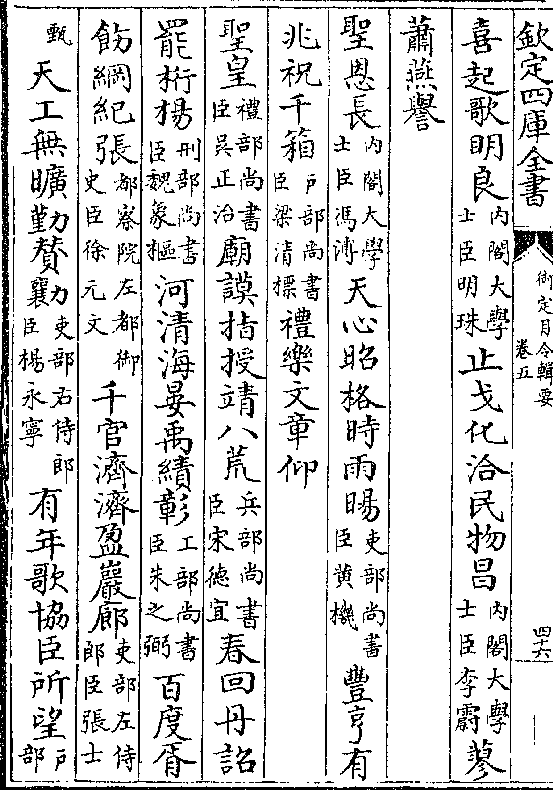 欽定四庫全書
御定月令輯要
卷五
四十六
喜起歌明良內閣大學士臣明珠止戈化洽民物昌內閣大學士臣李霨蓼
蕭燕譽
聖恩長內閣大學士臣馮溥天心昭格時雨暘吏部尚書臣黃機豐亨有
兆祝千箱戶部尚書臣梁清標禮樂文章仰
聖皇禮部尚書臣吳正治廟謨指授靖八荒兵部尚書臣宋德宜春回丹詔
罷桁楊刑部尚書臣魏象樞河清海晏禹績彰工部尚書臣朱之弼百度胥
飭綱紀張都察院左都御史臣徐元文千官濟濟盈巖廊吏部左侍郎臣張士
甄天工無曠勤贊襄吏部右侍郎臣楊永寧有年歌協臣所望戶部